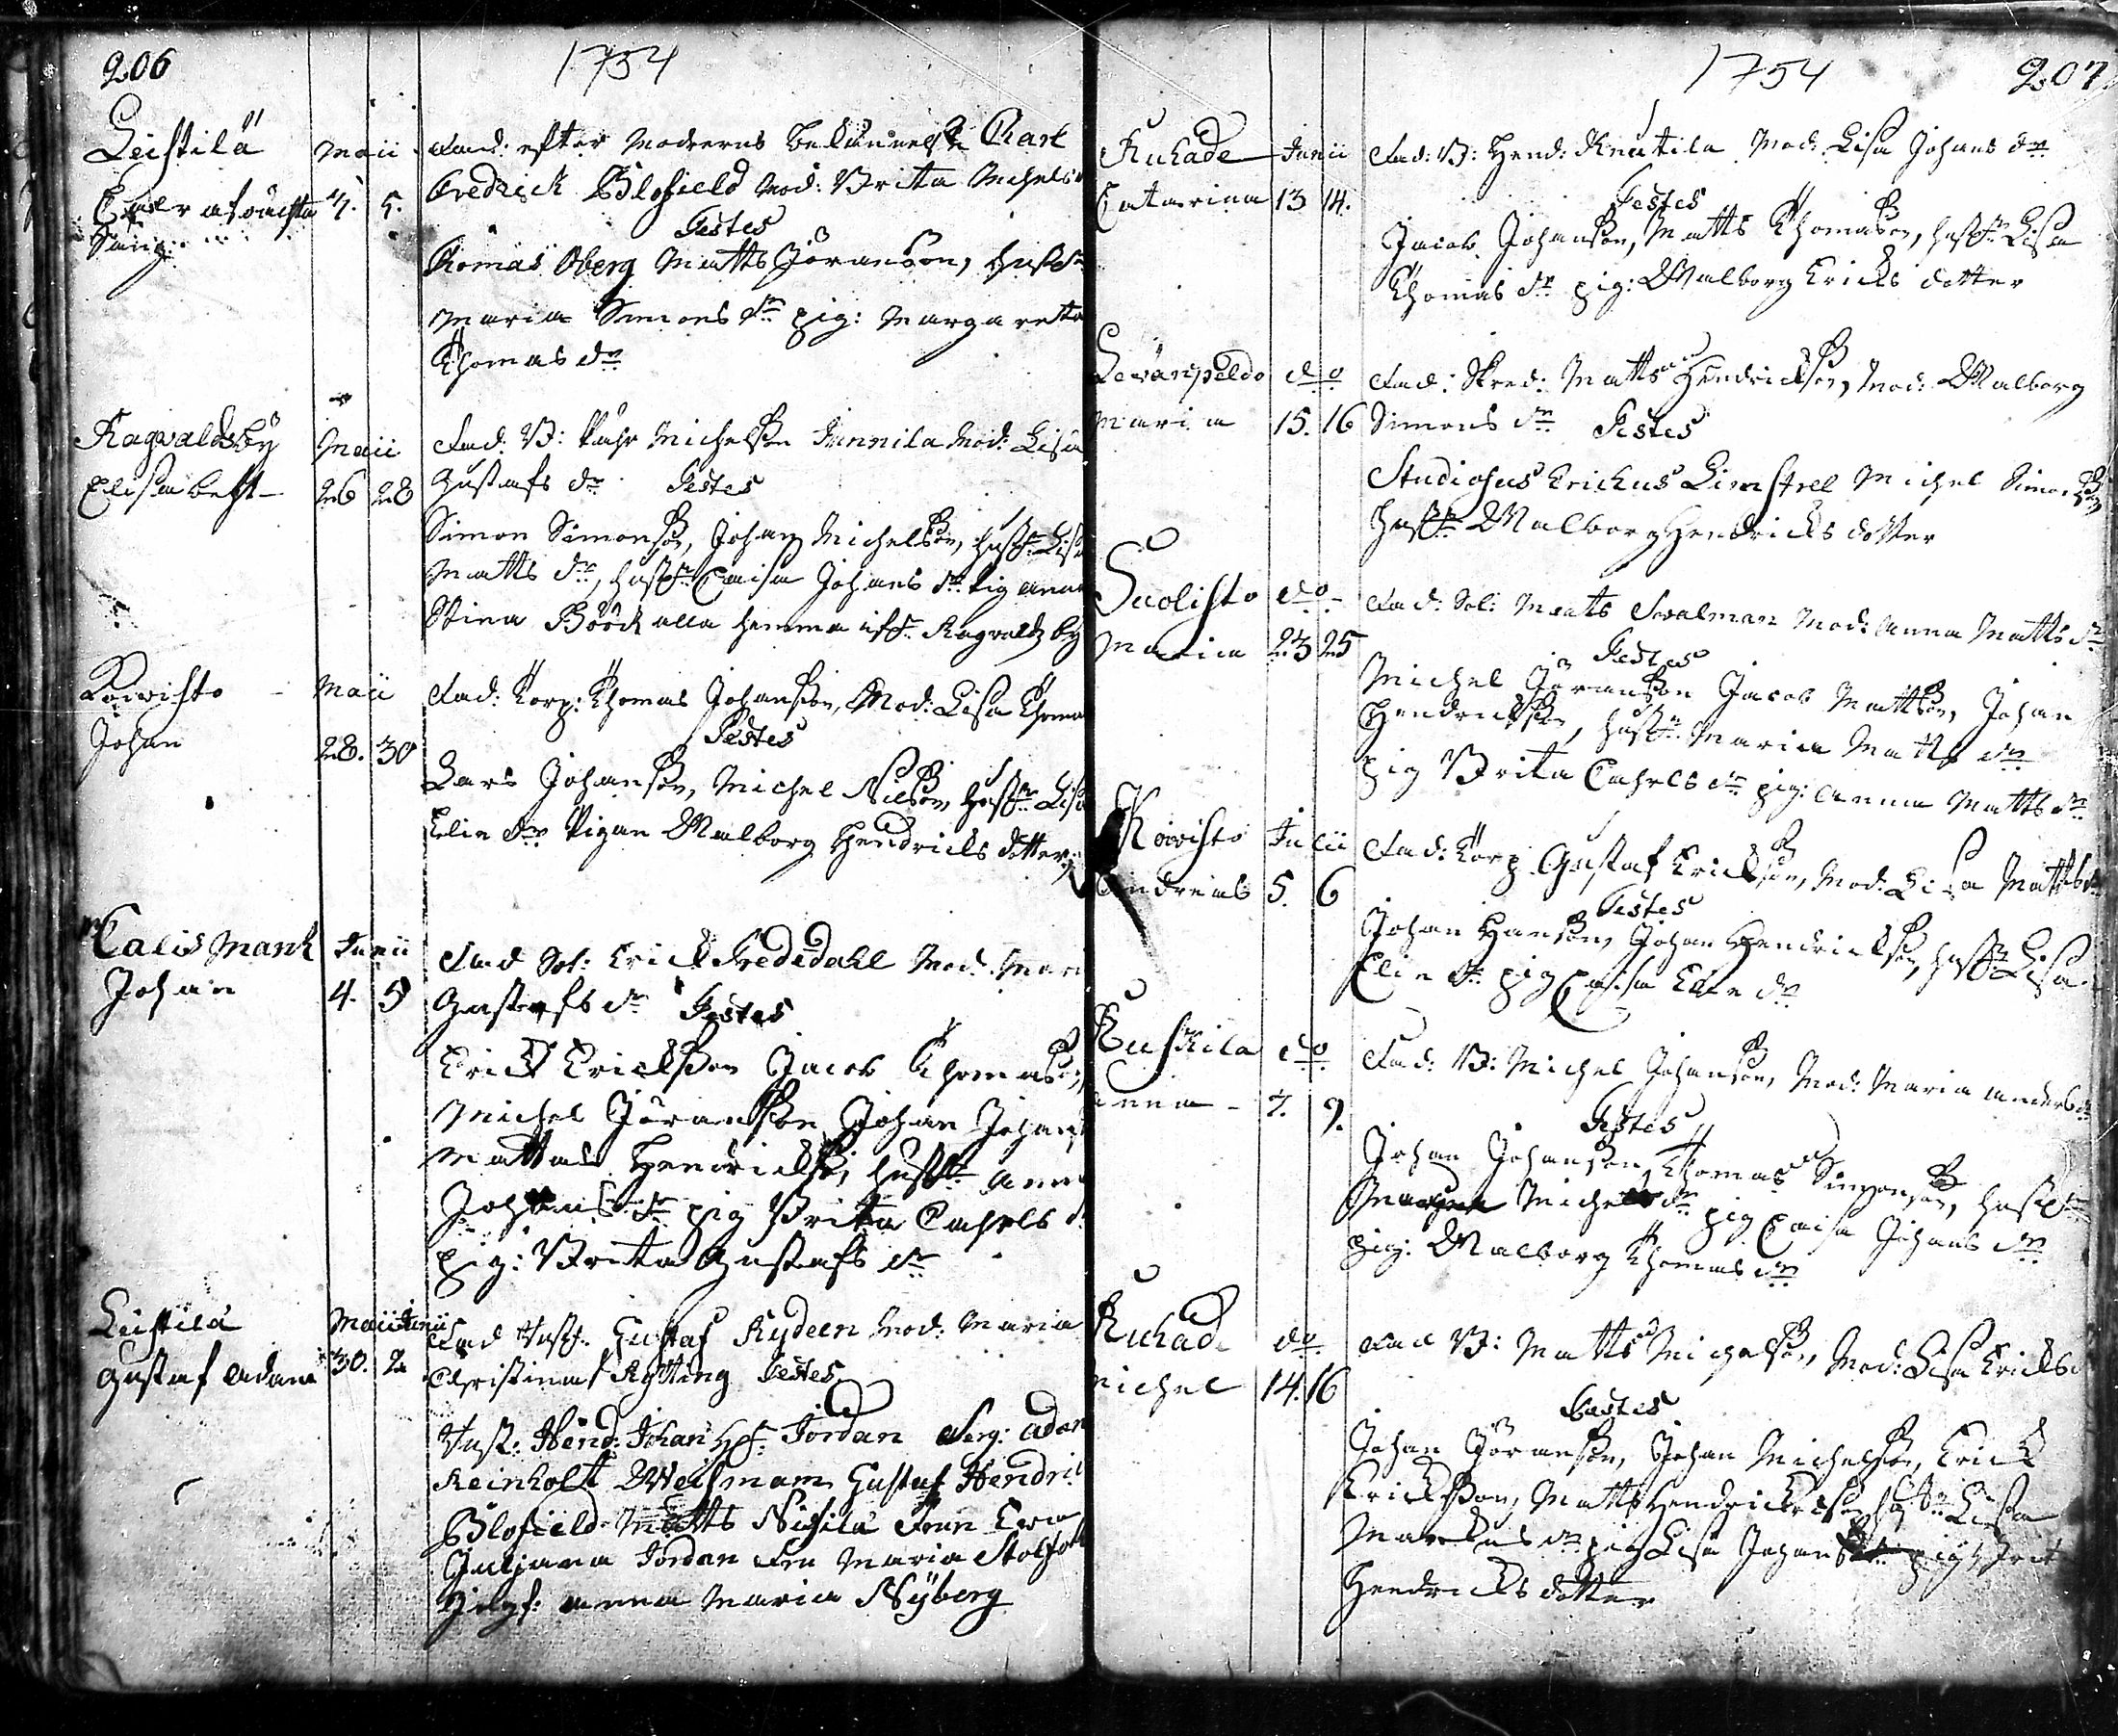 206
1754
Leistilä Maii Fad: efter Moderns bekännelse Carl
7. 5. Fredrich Blofield Mod: Brita Michels
säng Testes
Tomas Öberg Matts Jöransson, hust:
Maria Simons dr pig: Margareta
Thomas dr
Ragvaldsby Maii Fad: B: Michelsson Jannila Mod: Lisa
Elisabeth 26 28 Gustafs dr Testes
Simon Simonsson, Johan Michelsson, hustr Lisa
Matts dr, hustr Caisa Johans dr Pig Anna
Stina Böök alla hemma ifr. Ragvaldzby
Koivisto Maii Fad: Korp: Thomas Johansson, Mod: Lisa Thomas
Johan 28. 30 Testes
Lars Johansson, Michel Nilsson, hustr Lisa
Elie dr Pigan Walborg Hendricks dotter
Calismark Junii Fad Sol: Erick Fredsdahl Mod: Mari
Johan 4. 5 Gustafs dr Testes
Erick Ericksson Jacob Thomasson,
Michel Jöransson Johan Johans
Mattas Hendricksson, hustr Anna
Johans dr pig Brita Carls d
pig: Brita Gustafs dr
Leistilä Maii Junii Fad Gustaf Rydeen Mod: Maria
Gustaf Adam 30. 2 Christina Rytting Testes
Hend: Johan Jordan Serg: Adam
Reinholt Weisman Gustaf Hendric
Blofield Matts Nihilä Frun Ewa
Juliana Jordan Fru Maria Stolfoth
Anna Maria Nyberg
1754 207
Kuhade Junii Fad: B: Hend: Knutila Mod: Lisa Johans dr
Catarina 13 14. Testes
Jacob Johansson, Matts Thomasson, hustr Lisa
Thomas dr pig: Walborg Ericks dotter
Levänpeldo do Fad: Skred: Matts Hendricksson, Mod: Walborg
Maria 15. 16 Simons dr Testes
Studiosus Erichus Limstrel Michel Simonsson
hustr Walborg Hendricks dotter
Suolisto do Fad: Sol: Matts Swalman Mod: Anna Matts dr
Maria 23 25 Testes
Michel Jöransson Jacob Mattsson, Johan
Hendricksson, hustr Maria Matts dr
pig Brita Carls dr pig: Anna Matts dr
Koivisto Julii Fad: Korp Gustaf Ericksson, Mod: Lisa Matts dr
Andreas 5. 6 Testes
Johan Hansson, Johan Hendricksson, hustr Lisa
Elie dr pig Caisa Elie dr
Kuskila do Fad: B: Michel Johansson, Mod: Maria Anders dr
Anna 7. 9. Testes
Johan Johansson, Thomas Simonsson, hustr
Michels dr pig Caisa Johans dr
pig: Walborg Thomas dr
Kuhade do Fad B: Matts Michelsson, Mod: Lisa Ericks d
Michel 14. 16 Testes
Johan Jöransson, Johan Michelsson, Erick
Ericksson, Matts Hendricksson, hustr Lisa
Marcus dr pig Lisa Johans dr pig Brit
Hendricks dotter